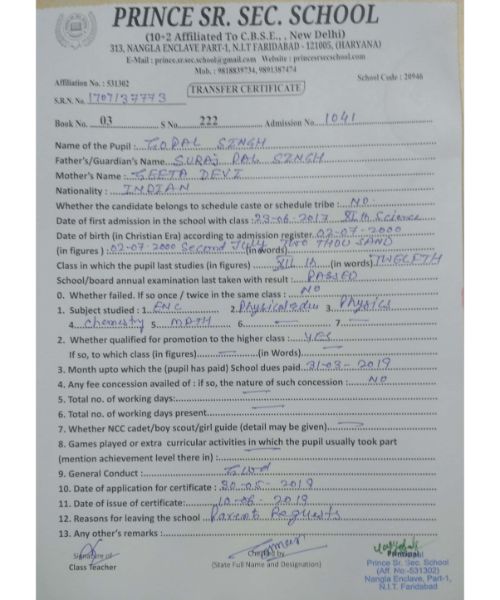 PRINCE SR. SEC. SCHOOL
(10+2 Affiliated To C.B.S.E., , New Delhi)
313, NANGLA ENCLAVE PART-1, N.I.T FARIDABAD - 121005, (HARYANA)
E-Mail : prince.sr.sec.school@gmail.com Website : princesrsecschool.com
Mob. : 9818839734, 9891387474
Affiliation No. : 531302 School Code : 20946
TRANSFER CERTIFICATE
S.R.N. No. 1707137773
Book No. 03 S No. 222 Admission No. 1041
Name of the Pupil : GOPAL SINGH
Father's/Guardian's Name SURAJ PAL SINGH
Mother's Name : GEETA DEVI
Nationality : INDIAN
Whether the candidate belongs to schedule caste or schedule tribe : NO
Date of first admission in the school with class : 23-06-2017 XIth Science
Date of birth (in Christian Era) according to admission register 02-07-2000
(in figures) : 02-07-2000 Second July (in words) TWO THOUSAND
Class in which the pupil last studies (in figures) XII th (in words) TWELFTH
School/board annual examination last taken with result : PASSED
0. Whether failed. If so once / twice in the same class : NO
1. Subject studied : 1. ENG 2. Physical edu 3. Physics
4. chemistry 5. MATH 6. — 7. —
2. Whether qualified for promotion to the higher class : YES
If so, to which class (in figures) — (in Words) —
3. Month upto which the (pupil has paid) School dues paid 31-03-2019
4. Any fee concession availed of : if so, the nature of such concession : NO
5. Total no. of working days: —
6. Total no. of working days present —
7. Whether NCC cadet/boy scout/girl guide (detail may be given) —
8. Games played or extra curricular activities in which the pupil usually took part
(mention achievement level there in) : —
9. General Conduct : Good
10. Date of application for certificate : 30-05-2019
11. Date of issue of certificate: 10-06-2019
12. Reasons for leaving the school Parent Requests
13. Any other's remarks :
Signature of Checked by Principal
Class Teacher (State Full Name and Designation) Prince Sr. Sec. School
(Aff. No.-531302)
Nangla Enclave, Part-1,
N.I.T. Faridabad